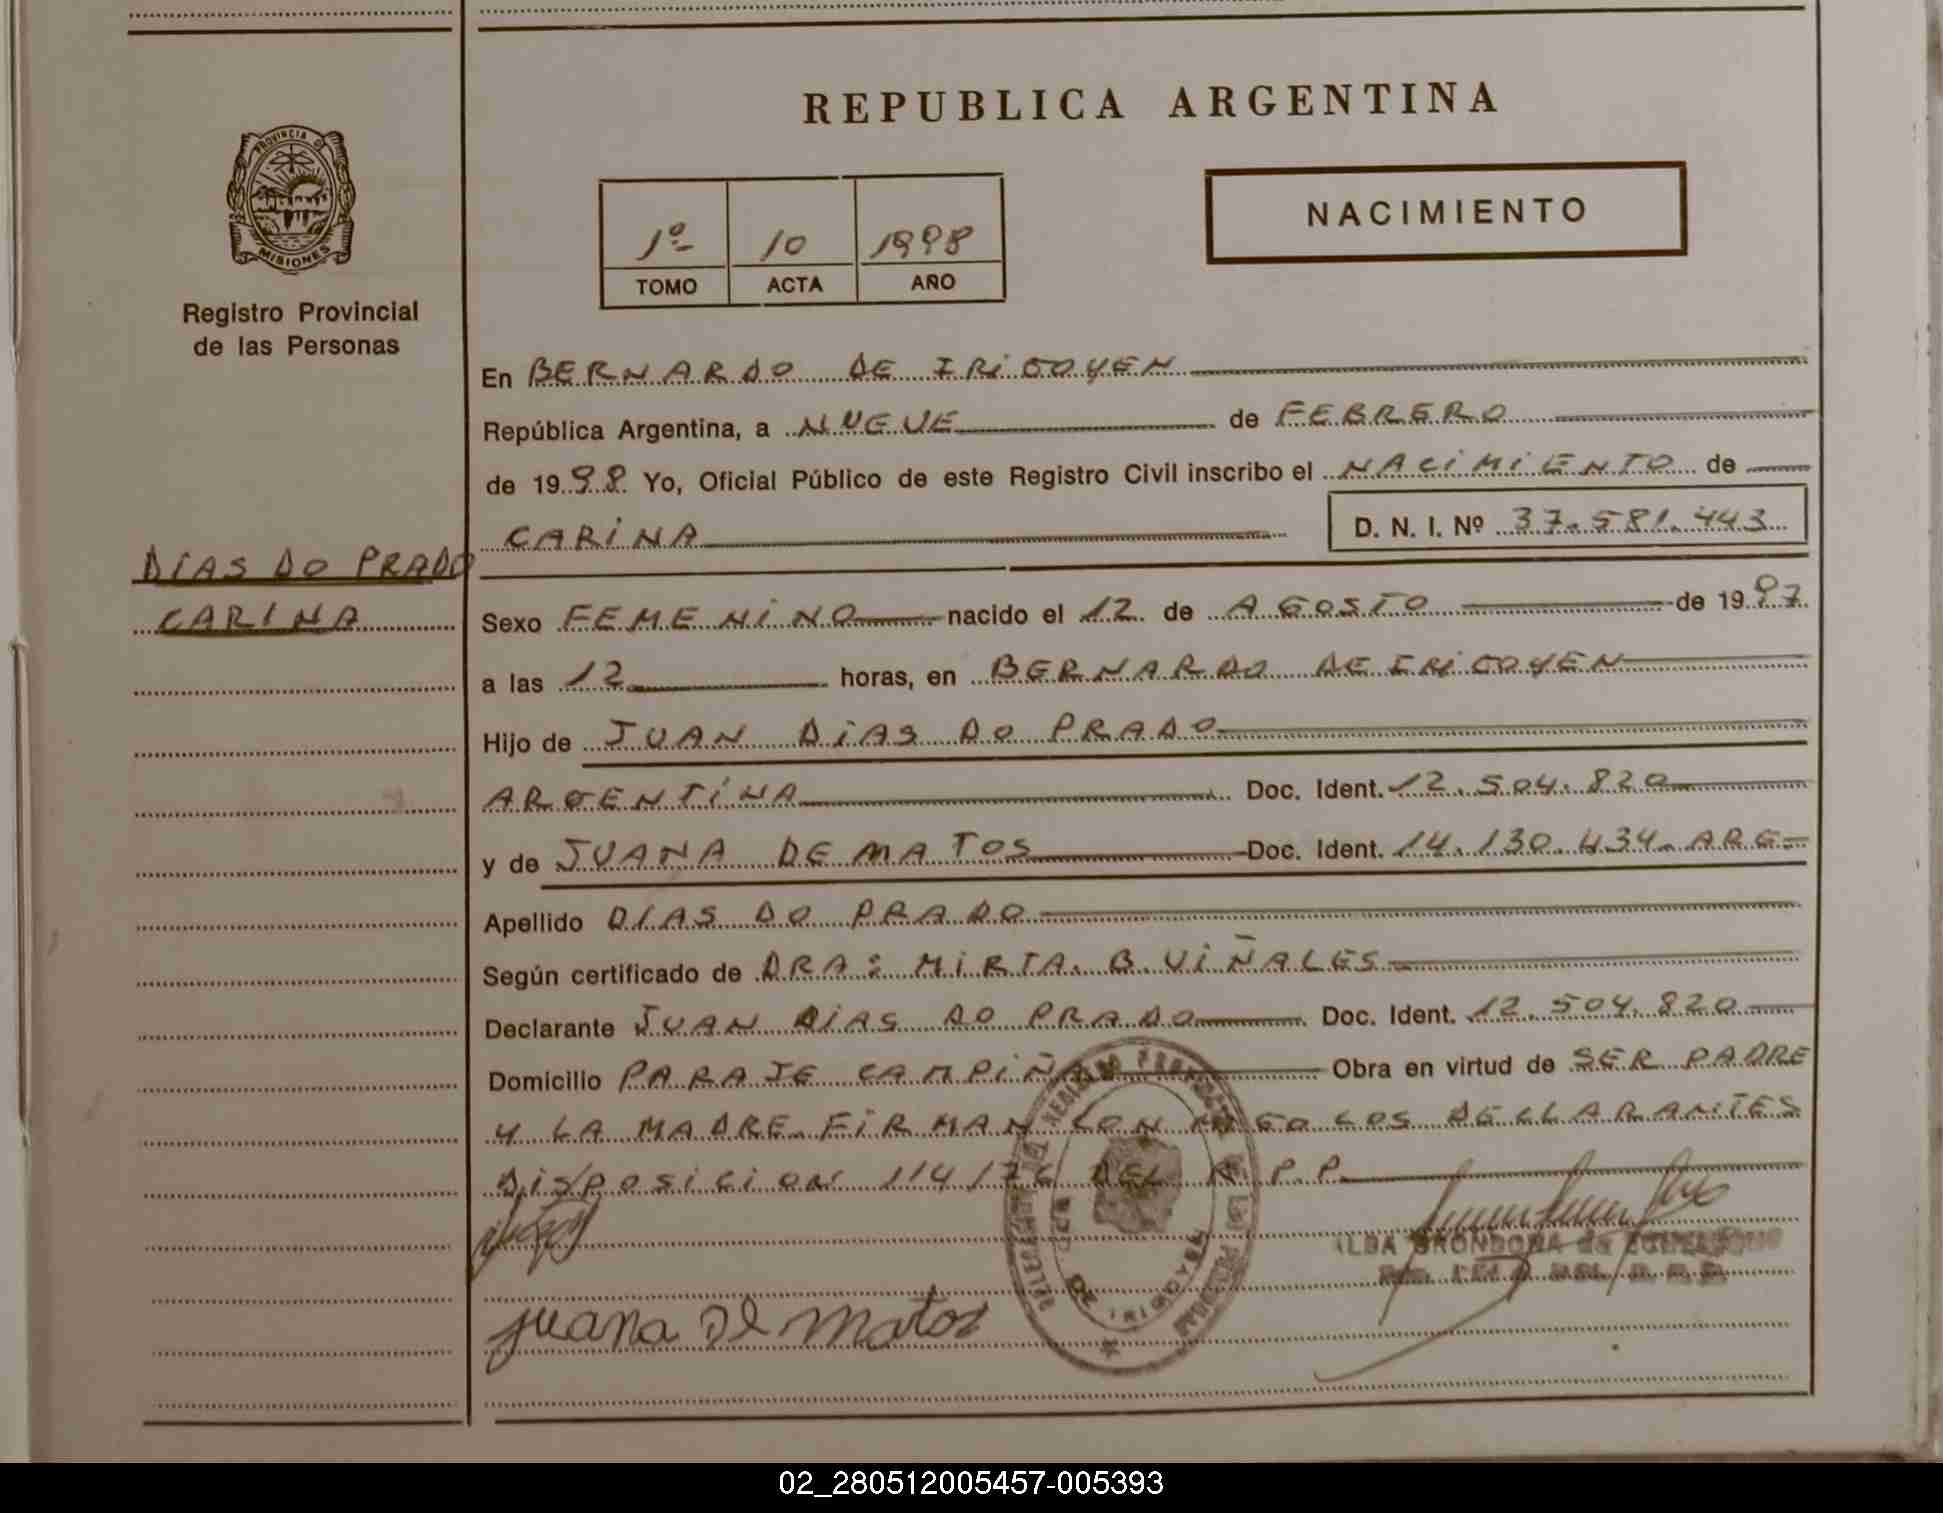 REPUBLICA ARGENTINA
PROVINCIA D
MISIONES
Registro Provincial
de las Personas
1º 10 1998
TOMO ACTA AÑO
NACIMIENTO
En BERNARDO DE IRIGOYEN
República Argentina, a NUEVE de FEBRERO
de 1998 Yo, Oficial Público de este Registro Civil inscribo el NACIMIENTO de
CARINA D. N. I. Nº 37.581.443
DIAS DO PRADO
CARINA
Sexo FEMENINO nacido el 12 de AGOSTO de 1997
a las 12 horas, en BERNARDO DE IRIGOYEN
Hijo de JUAN DIAS DO PRADO
ARGENTINA Doc. Ident. 12.504.820
y de JUANA DE MATOS Doc. Ident. 14.130.434. ARG
Apellido DIAS DO PRADO
Según certificado de DRA: MIRTA. B. VIÑALES
Declarante JUAN DIAS DO PRADO Doc. Ident. 12.504.820
Domicilio PARAJE CAMPIÑA Obra en virtud de SER PADRE
Y LA MADRE FIRMAN CON MIGO LOS DECLARANTES
DISPOSICION 114/76 DEL R.P.P.
DE IRIGOYEN
ALBA GRONDONA de
juana De Matos
02_280512005457-005393